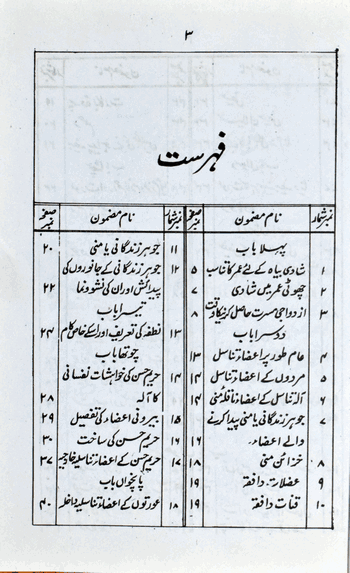 ۳
فہرست
نمبرشمار نام مضمون صفحہ نمبر
پہلا باب
۱ شادی بیاہ کے لئے عمر کا تناسب ۵
۲ چھوٹی عمر میں شادی ۷
۳ ازدواجی مسرت حاصل کرنیکا وقت ۸
دوسرا باب
۴ عام طور پر اعضاء تناسل ۱۳
۵ مردوں کے اعضاء تناسل ۱۴
۶ آلہ تناسل کے اعضاء ناقلہ منی ۱۴
۷ جوہر زندگانی یا منی پیدا کرنے
والے اعضاء ۱۶
۸ خزائن منی ۱۸
۹ عضلات دافقہ ۱۹
۱۰ قنات دافقہ ۱۹
نمبرشمار نام مضمون صفحہ نمبر
۱۱ جوہر زندگانی یا منی ۲۰
۱۲ جوہر زندگانی کے جانوروں کی
پیدائش اور ان کی نشوونما ۲۲
تیسرا باب
۱۳ نطفہ کی تعریف اور اسکے خاص کام ۲۴
چوتھا باب
۱۴ حریم حسن کی خواہشات نفسانی
کا آلہ ۲۸
۱۵ بیرونی اعضاء کی تفصیل ۲۹
۱۶ حریم حسن کی ساخت ۳۰
۱۷ حریم حسن کے اعضاء تناسلیہ خارجیہ ۳۷
پانچواں باب
۱۸ عورتوں کے اعضاء تناسلیہ داخلہ ۴۰